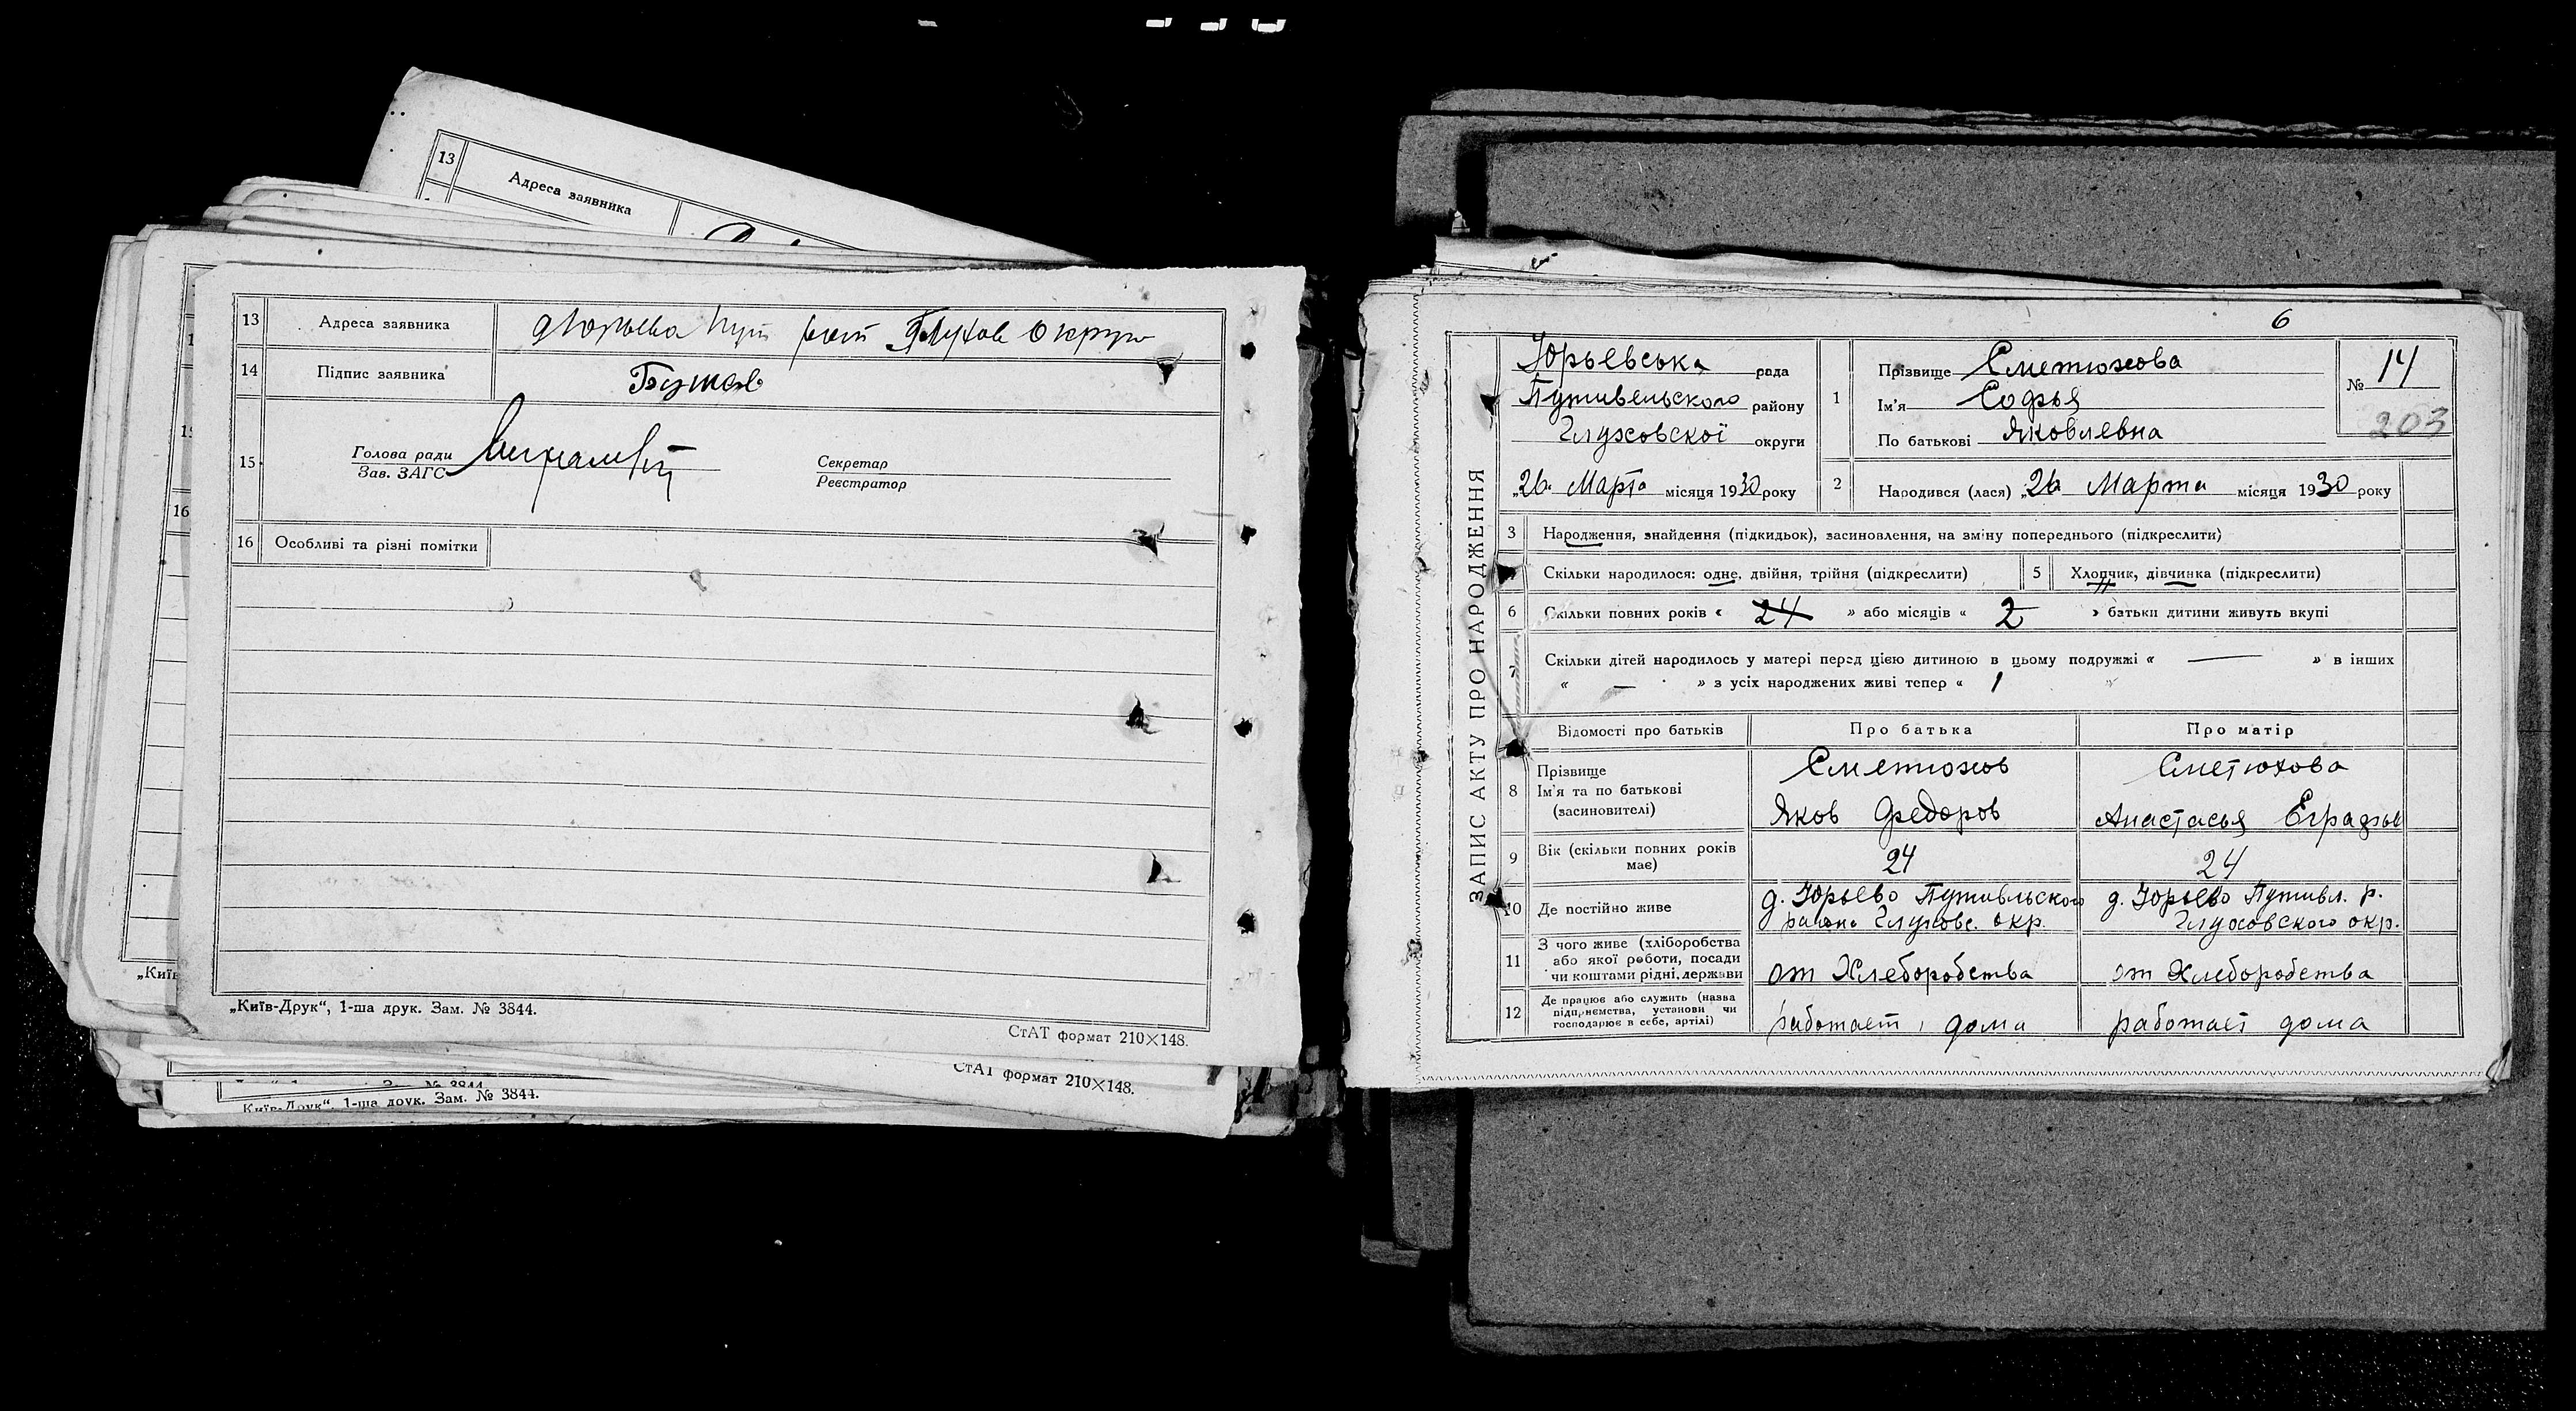 13
Адреса заявника
13
Адреса заявника
д Юрьева Пут район Глухов Округ
14
Підпис заявника
Бужов
15
Голова ради
Зав. ЗАГС
Секретар
Реєстратор
16
16
Особливі та різні помітки
„Київ-Друк“, 1-ша друк. Зам. № 3844.
СтАТ формат 210×148.
СтАТ формат 210×148.
Київ-Друк“, 1-ша друк. Зам. № 3844.
6
ЗАПИС АКТУ ПРО НАРОДЖЕННЯ
Юрьевська рада
Путивельского району
Глуховскої округи
„26“ Марта місяця 1930 року
1
Прізвище Сметюхова
Ім'я Софья
По батькові Яковлевна
№ 14
203
2
Народився (лася) „26“ Марта місяця 1930 року
3
Народження, знайдення (підкидьок), засиновлення, на зміну попереднього (підкреслити)
Скільки народилося: одне, двійня, трійня (підкреслити)
5
Хлопчик, дівчинка (підкреслити)
6
Скільки повних років « 24 » або місяців « 2 » батьки дитини живуть вкупі
7
Скільки дітей народилось у матері перед цією дитиною в цьому подружжі « — » в інших
« — » з усіх народжених живі тепер « 1 »
Відомості про батьків
Про батька
Про матір
8
Прізвище
Ім'я та по батькові
(засиновителі)
Сметюхов
Яков Федоров
Сметюхова
Анастасья
9
Вік (скільки повних років має)
24
24
10
Де постійно живе
д. Юрьево Путивльского
района Глуховс. окр.
д. Юрьево Путивл. р.
Глуховского окр.
11
З чого живе (хліборобства
або якої роботи, посади
чи коштами рідні, держави
от Хлеборобства
от Хлеборобства
12
Де працює або служить (назва
підприємства, установи чи
господарює в себе, артілі)
работает дома
работает дома